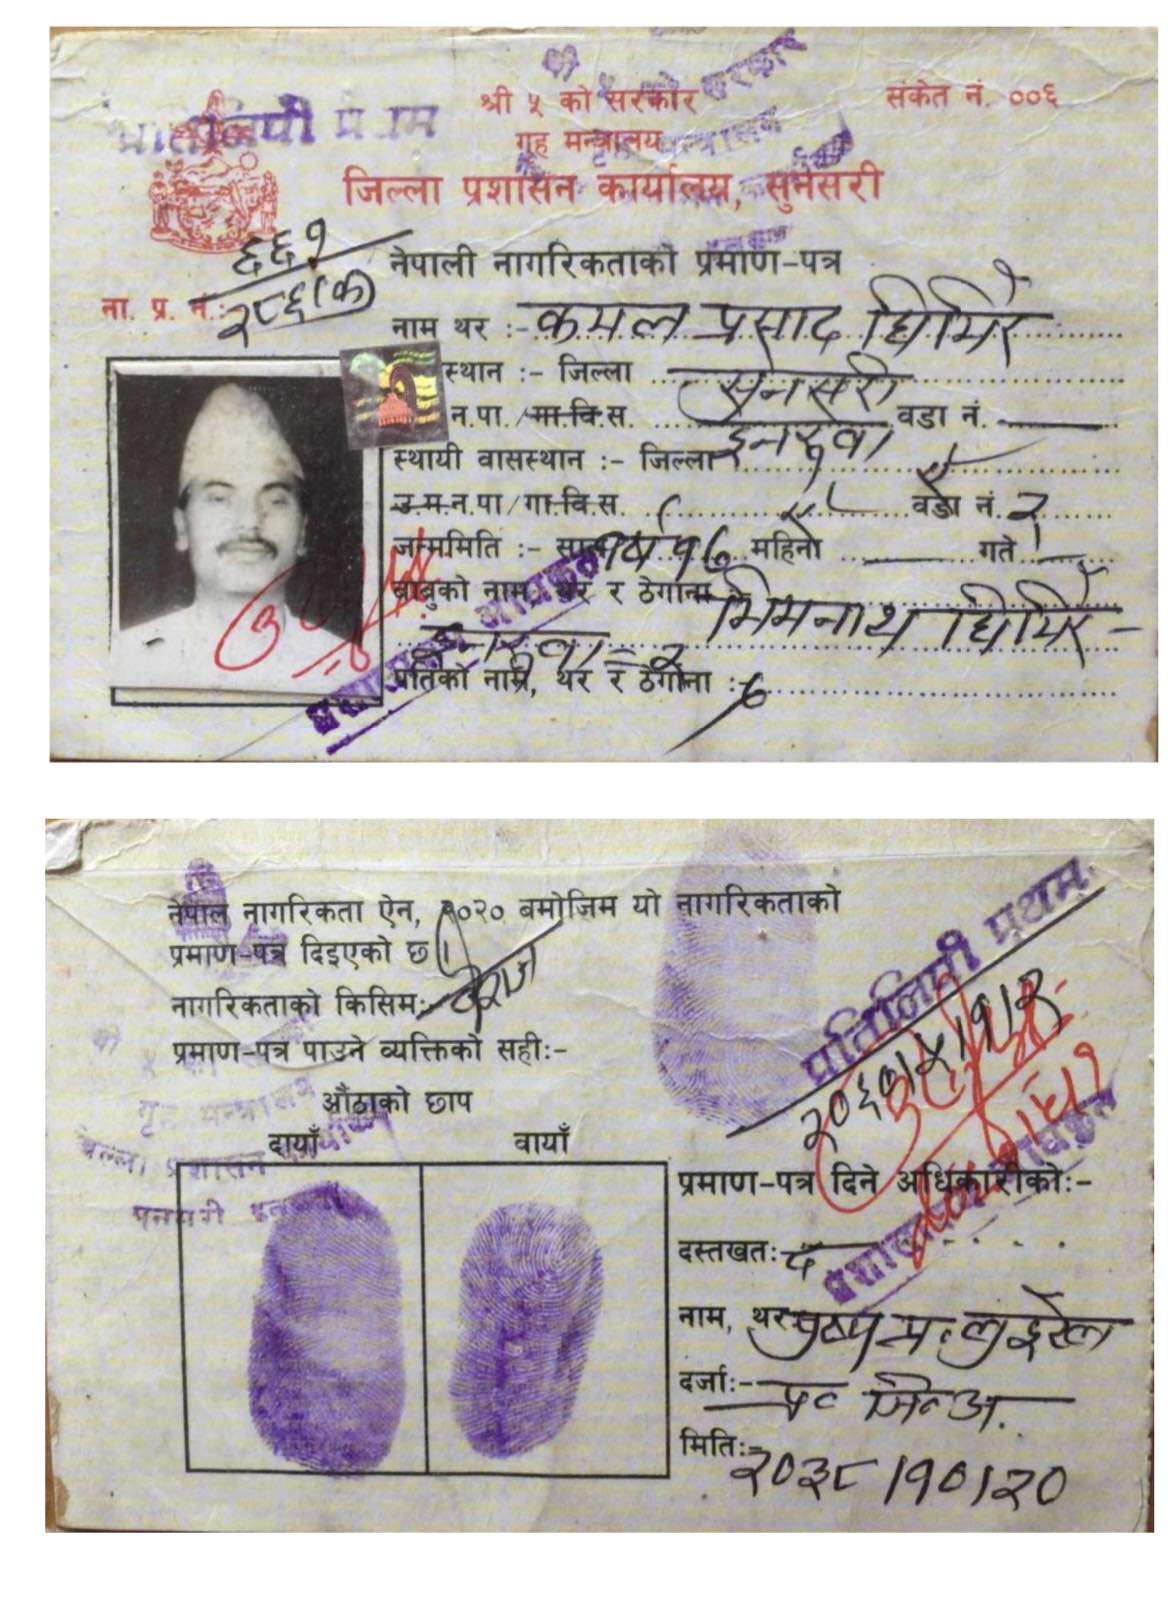 प्रतिलिपी प्रथम
श्री ५ को सरकार
संकेत नं. ००६
गृह मन्त्रालय
जिल्ला प्रशासन कार्यालय, सुनसरी
नेपाली नागरिकताको प्रमाण-पत्र
ना. प्र. नं.: ६६१
२८६(क)
नाम थर :- कमल प्रसाद घिमिरे
स्थान :- जिल्ला सुनसरी
न.पा./गा.वि.स. इनरुवा वडा नं.
स्थायी वासस्थान :- जिल्ला
उ.म.न.पा/गा.वि.स. वडा नं. २
जन्ममिति :- साल वर्ष १७ महिना गते
बाबुको नाम, थर र ठेगाना :- भिमनाथ घिमिरे -
इनरुवा - २
पतिको नाम, थर र ठेगाना :-
नेपाल नागरिकता ऐन, २०२० बमोजिम यो नागरिकताको
प्रमाण-पत्र दिइएको छ ।
नागरिकताको किसिम:- वंशज
प्रमाण-पत्र पाउने व्यक्तिको सही:-
औंठाको छाप
दायाँ बायाँ
प्रतिलिपी प्रथम
२०६७।५।१।२
गृह मन्त्रालय
जिल्ला प्रशासन
प्रमाण-पत्र दिने अधिकारीको:-
दस्तखत: द
नाम, थर पुष्प प्र. लुइटेल
दर्जा:- प्र० जि० अ.
मिति:- २०३८।१०।२०